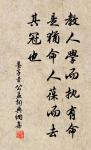 教人學而執有命
是猶命人葆而去
其冠也
墨子去公孟新與濁書